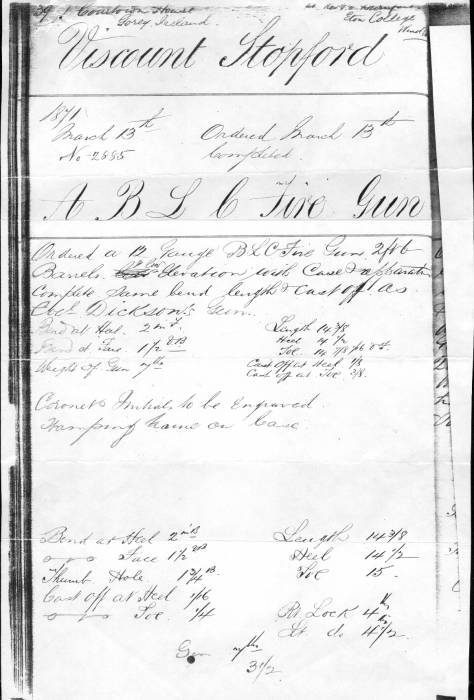 39 Courtown House
Gorey Ireland
Eton College
Viscount Stopford
1871
March 13th Ordered March 13th
No 2885 Completed
A B L C Fire Gun
Ordered a 12 Gauge B L C Fire Gun 2ft 6
Barrels Elevation with Case & apparatus
Complete Same bend length & Cast off as
Col Dickson's Gun.
Bend at Heel 2 Length 14 3/8
Bend at Face 1 1/2 Heel 14 1/2
Weight of Gun Toe 14 7/8
Cast off at Heel 1/8
Cast off at Toe 2/8
Coronet & Initials to be Engraved
Stamping Name on Case
Bend at Heel 2 Length 14 3/8
Face 1 1/2 Heel 14 1/2
Thumb Hole 1 3/4 Toe 15
Cast off at Heel 1/16
Toe 1/4 Rt Lock 4
Lt do 4 1/2
Gun
3 1/2